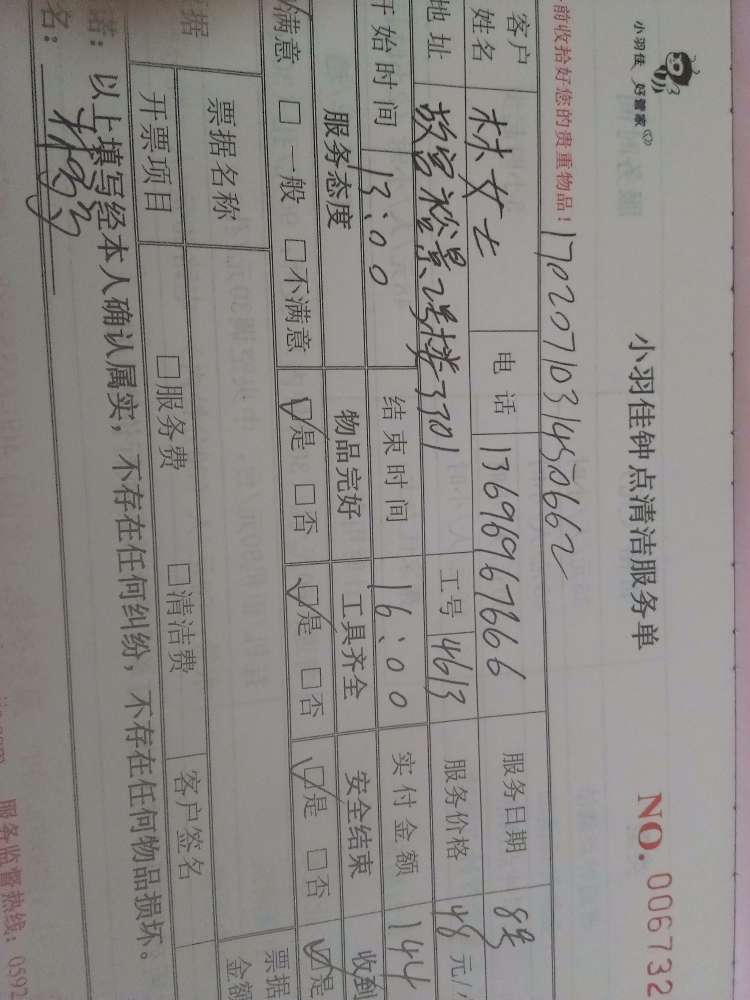 小羽佳 好管家
小羽佳钟点清洁服务单 NO. 006732
前收拾好您的贵重物品! 1702071031450662
客户姓名 林女士 电话 13696967666 服务日期 8号
地址 故宫裕景2号楼3301 工号 4613 服务价格 48 元/
开始时间 13:00 结束时间 16:00 实付金额 144
服务态度 物品完好 工具齐全 安全结束 收到
满意 □ 一般 □ 不满意 ☑是 □否 ☑是 □否 ☑是 □否 ☑是
票据名称 票据
金额
据 开票项目 □服务费 □清洁费 客户签名
诺: 以上填写经本人确认属实, 不存在任何纠纷, 不存在任何物品损坏。
名:
服务监督热线: 0592